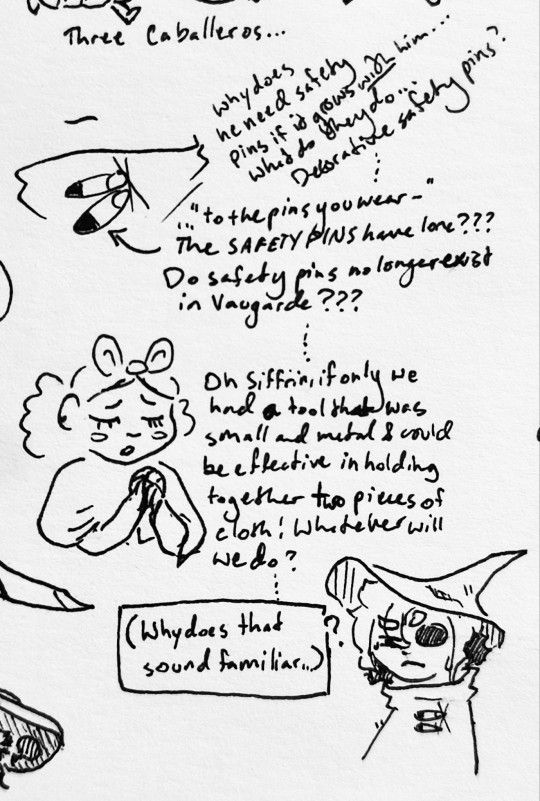 Three Caballeros...
Why does
he need safety
pins if it grows with him...
What do they do...
Decorative safety pins?
... "to the pins you wear-"
The SAFETY PINS have lore???
Do safety pins no longer exist
in Vaugarde???
Oh Siffrin, if only we
had a tool that was
small and metal & could
be effective in holding
together two pieces of
cloth! Whatever will
we do?
(Why does that
sound familiar..)
?